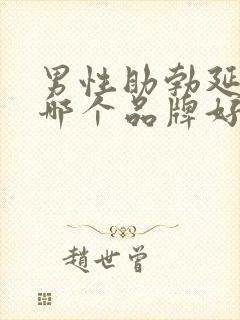 男性助勃延
哪个品牌好
趙世曾